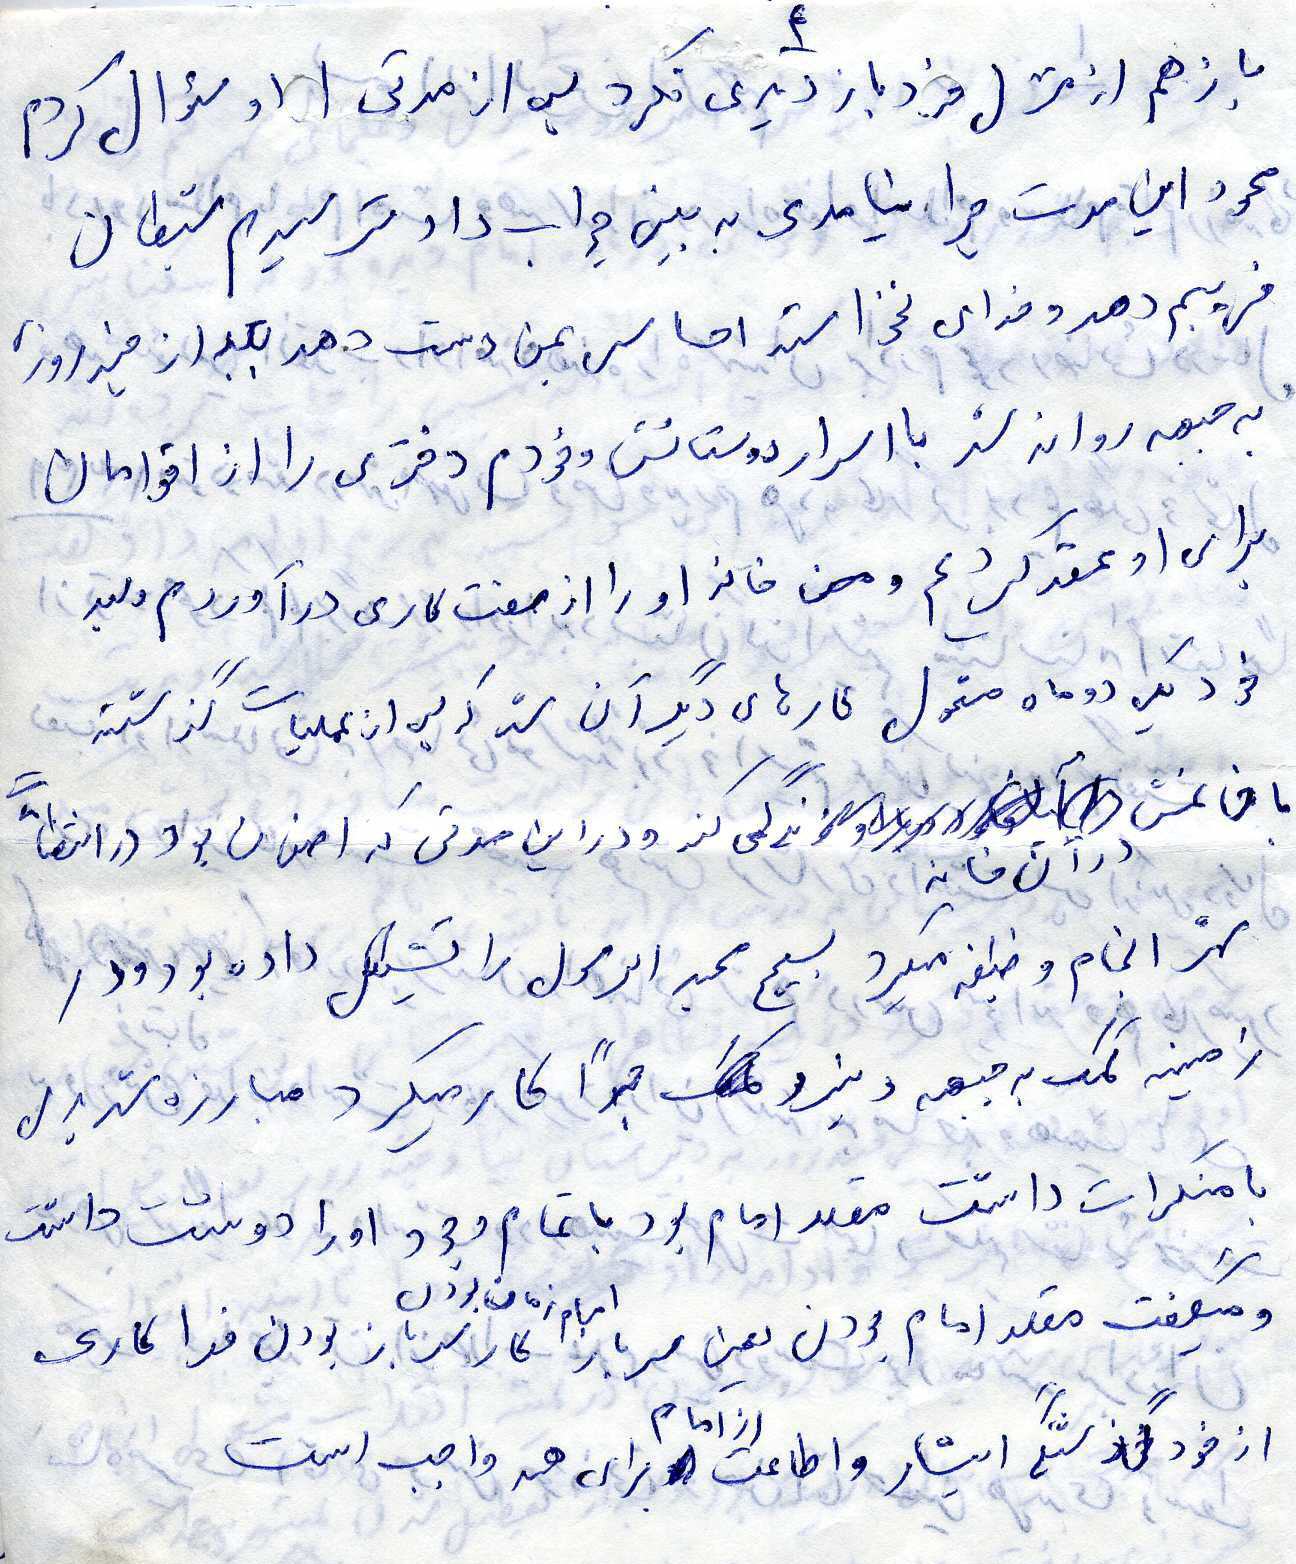 ۴
باز هم از منزل خود بازدیدی نکرد پس از مدتی از او سؤال کردم
محمود این مدت چرا نیامدی به بینی جواب داد ترسیدم شیطان
فریبم دهد و خدای نخواسته احساس بمن دست دهد بعد از چند روز
به جبهه روانه شد با اسرار دوستانش و خودم دختری را از اقوامان
برای او عقد کردیم و من خانه او را از سفت کاری در آوردم و بعد
خود یکی دو ماه مشغول کارهای دیگر آن شد که پس از عملیات گذشته
با خانمش در آن خانه زندگی کند و در این مدتی که اصفهان بود در انتظامات
شهر انجام وظیفه میکرد بسیج محمد را تشکیل داده بود و در
زمینه کمک به جبهه و نیرو جداً کار میکرد مبارزه شدیدی
با منکرات داشت مقلد امام بود با تمام وجود او را دوست داشت
و میگفت مقلد امام بودن یعنی سرباز امام زمان بودن کار سرباز بودن فدا کاری
از خود گذشتگی ایثار و اطاعت از امام برای همه واجب است